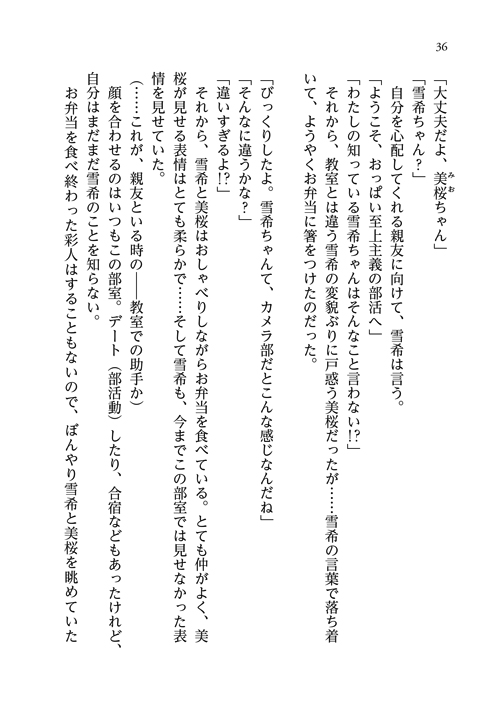 36
「大丈夫だよ、美桜ちゃん」
「雪希ちゃん？」
自分を心配してくれる親友に向けて、雪希は言う。
「ようこそ、おっぱい至上主義の部活へ」
「わたしの知っている雪希ちゃんはそんなこと言わない!?」
それから、教室とは違う雪希の変貌ぶりに戸惑う美桜だったが……雪希の言葉で落ち着
いて、ようやくお弁当に箸をつけたのだった。
「びっくりしたよ。雪希ちゃんて、カメラ部だとこんな感じなんだね」
「そんなに違うかな？」
「違いすぎるよ!?」
それから、雪希と美桜はおしゃべりしながらお弁当を食べている。とても仲がよく、美
桜が見せる表情はとても柔らかで……そして雪希も、今までこの部室では見せなかった表
情を見せていた。
（……これが、親友といる時の――教室での助手か）
顔を合わせるのはいつもこの部室。デート（部活動）したり、合宿などもあったけれど、
自分はまだまだ雪希のことを知らない。
お弁当を食べ終わった彩人はすることもないので、ぼんやり雪希と美桜を眺めていた